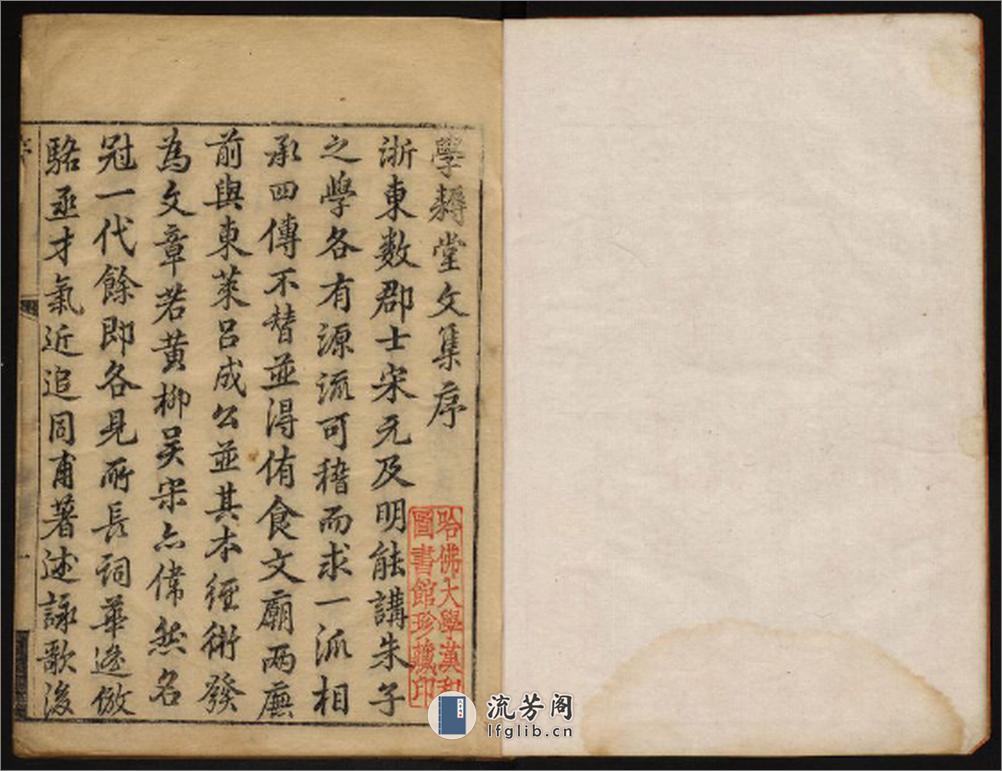 學耨堂文集序
浙東數郡士宋元及明能講朱子
之學各有源流可稽而求一派相
承四傳不替並得侑食文廟兩廡
前與東萊呂成公並其本經術發
為文章若黄柳吳宋亦偉然名
冠一代餘即各見所長詞華遠倣
駱丞才氣近追同甫著述詠歌後
序
一
哈佛大學漢和
圖書館珍藏印
流芳阁
lfglib.cn